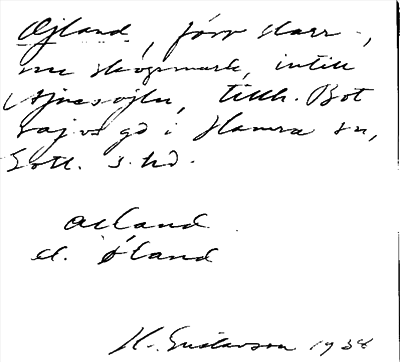 Øjland, förr starr-,
nu skogsmark, intill
Ajnesvjlu, tillh. Bot
vajvs gd i Hamra sn,
Gotl. s. hd.
øiland
el. öland
H. Gustavson 1938